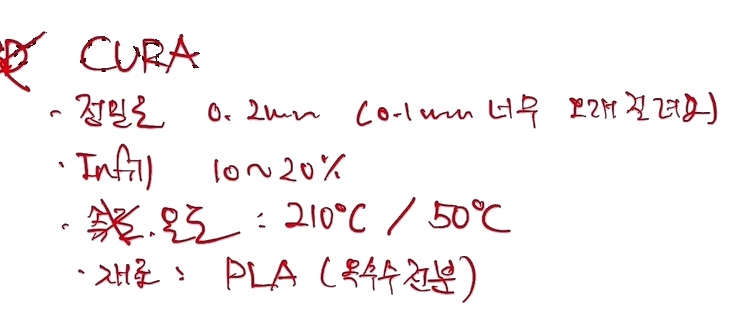 CURA
· 정밀도 0.2mm (0.1mm 너무 오래 걸려요)
· Infill 10~20%
· 온도 : 210°C / 50°C
· 재료 : PLA (옥수수 전분)